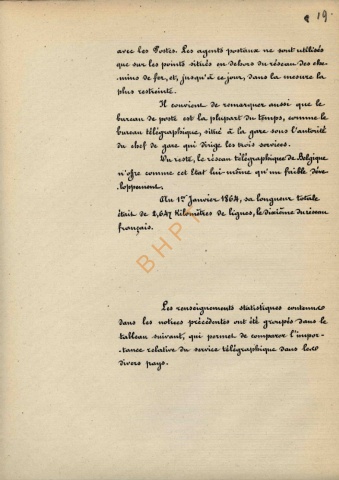 19.
avec les Postes. Les agents postaux ne sont utilisés
que sur les points situés en dehors du réseau des che-
mins de fer, et, jusqu'à ce jour, dans la mesure la
plus restreinte.
Il convient de remarquer aussi que le
bureau de poste est la plupart du temps, comme le
bureau télégraphique, situé à la gare sous l'autorité
du chef de gare qui dirige les trois services.
Du reste, le réseau télégraphique de Belgique
n'offre comme cet Etat lui-même qu'un faible déve-
-loppement.
Au 1er Janvier 1864, sa longueur totale
était de 2,647 Kilomètres de lignes, le dixième du réseau
français.
BHPT
Les renseignements statistiques contenus
dans les notices précédentes ont été groupés dans le
tableau suivant, qui permet de comparer l'impor-
-tance relative du service télégraphique dans les
divers pays.